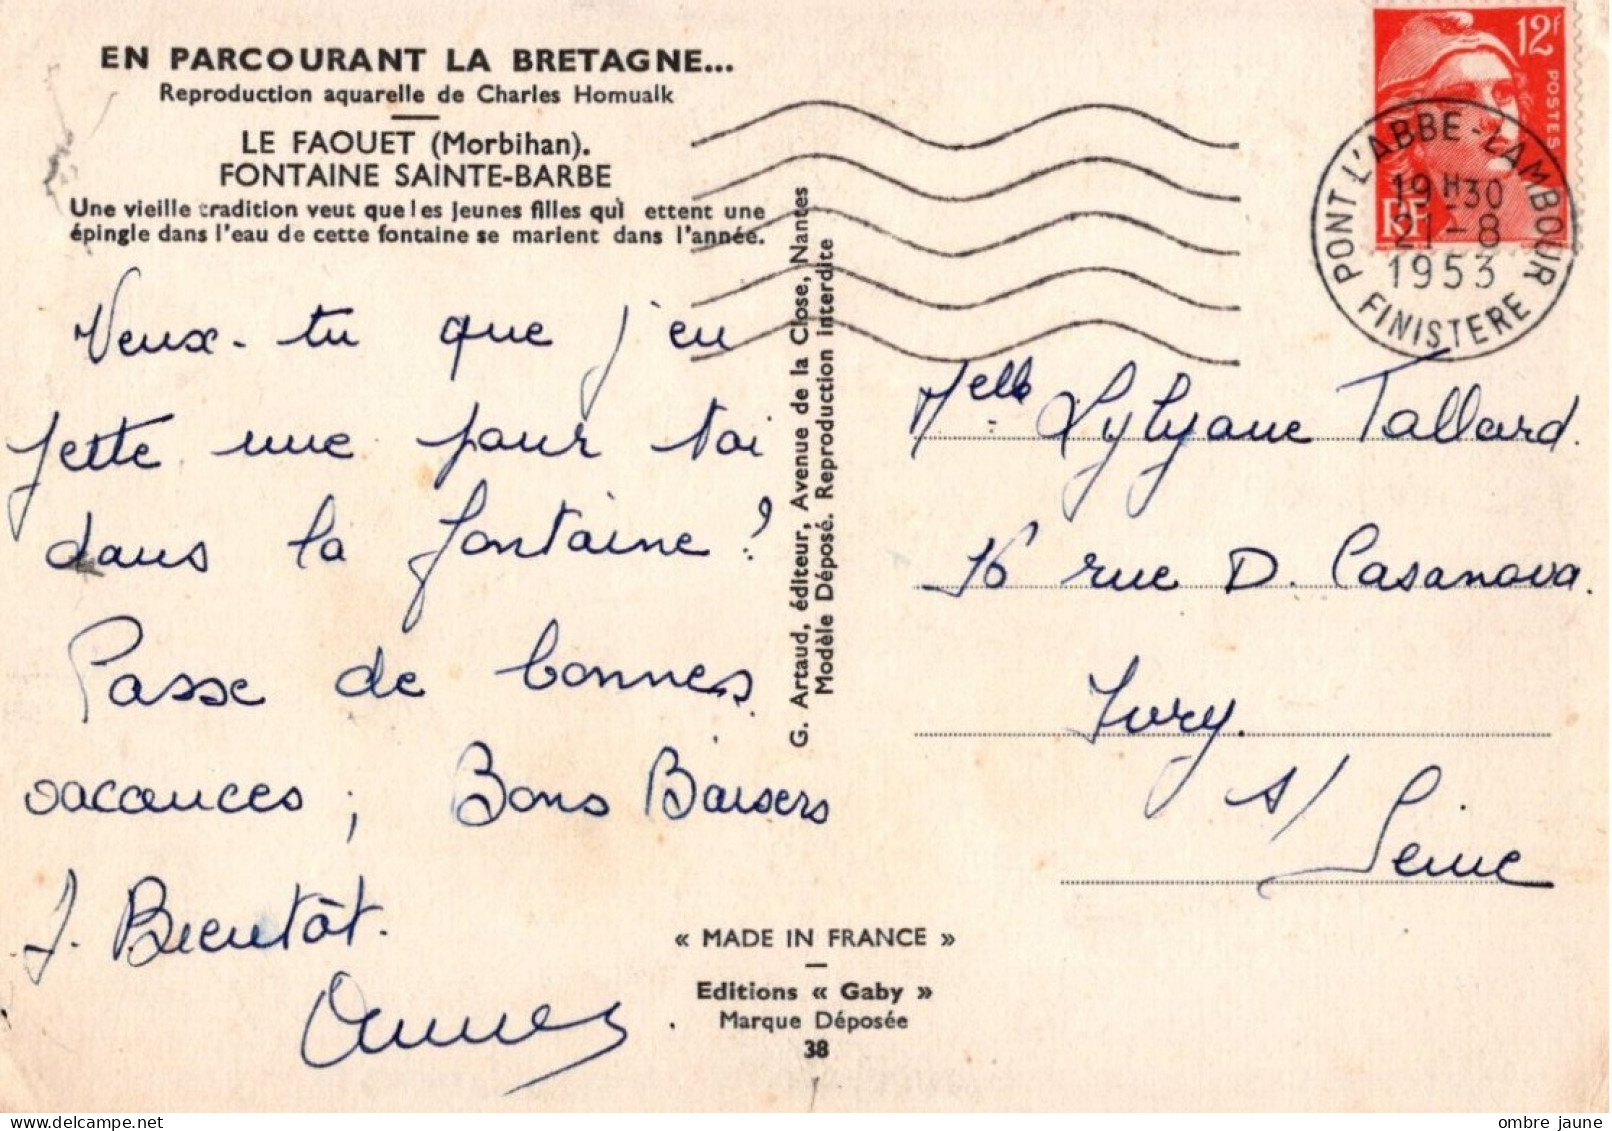 EN PARCOURANT LA BRETAGNE...
Reproduction aquarelle de Charles Homualk
LE FAOUET (Morbihan).
FONTAINE SAINTE-BARBE
Une vieille tradition veut que les jeunes filles qui ettent une
épingle dans l'eau de cette fontaine se marient dans l'année.
Veux-tu que j'en
jette une pour toi
dans la fontaine ?
Passe de bonnes
vacances ; Bons Baisers
A Bientôt.
G. Artaud, éditeur, Avenue de la Close, Nantes
Modèle Déposé. Reproduction interdite
12F
POSTES
RF
PONT L'ABBE-LAMBOUR
19H30
21-8
1953
FINISTERE
Melle Lylyane Tallard.
16 rue D. Casanova.
Ivry.
s/ Seine
« MADE IN FRANCE »
Editions « Gaby »
Marque Déposée
38
ombre jaune